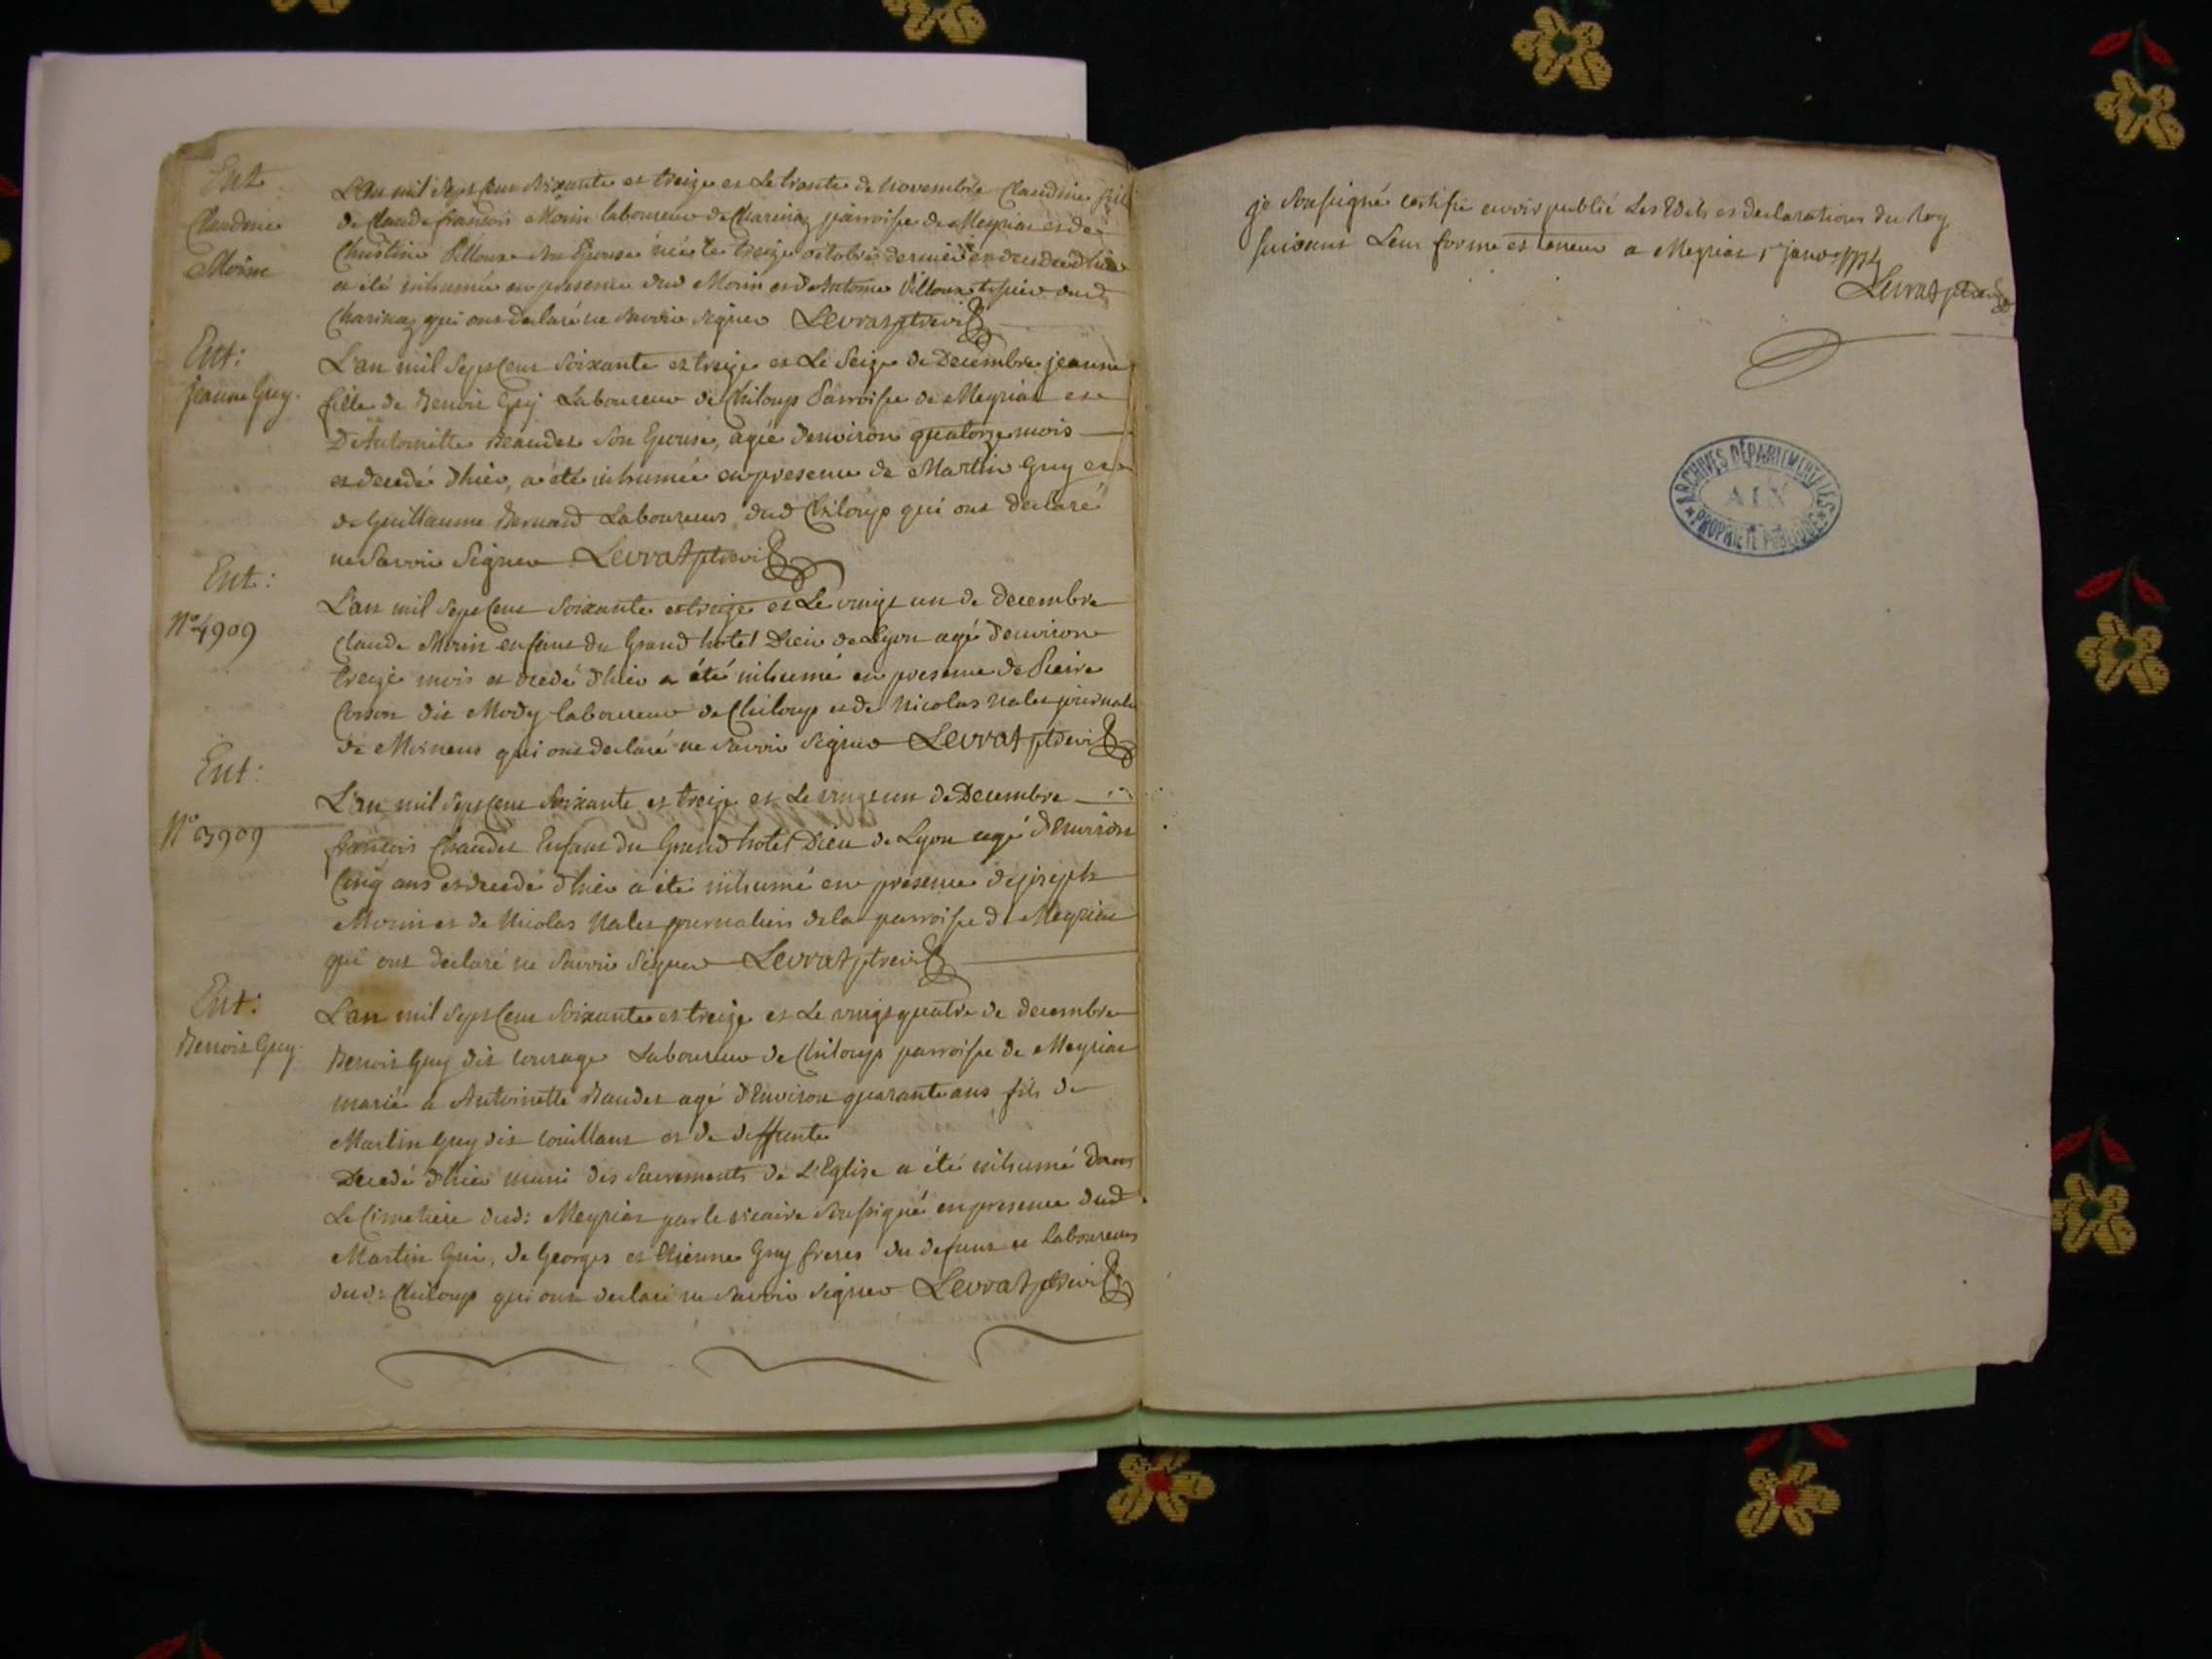 Ent
Claudine
Morin
L'an mil sept cent soixante et treize et Le trente de novembre Claudine fille
de Claude françois Morin laboureur de Charinaz parroisse de Meyriat et de
Christine Villoux son Epouse née le treize octobre dernier et decedée d'hier
a été inhumée en presence dud Morin et d'Antoine Villoux tissier dud
Charinaz qui ont declaré ne savoir signer Levrat ptre vi
Ent:
jeanne Guy.
L'an mil sept cent soixante et treize et Le seize de Decembre jeanne
fille de Benoit Guy Laboureur de Chiloup Parroisse de Meyriat et
D'Antoinette Beaudet son Epouse, agée d'environ quatorze mois
et decedé d'hier, a été inhumée en presence de Martin Guy et
de Guillaume Bernard Laboureurs dud Chiloup qui ont declaré
ne savoir signer Levrat ptre vi
Ent:
N° 4909
L'an mil sept cent soixante et treize et Le vingt un de decembre
Claude Morin enfant du Grand hotel Dieu de Lyon agé d'environ
treize mois et decedé d'hier a été inhumé en presence de Pierre
dit Mody laboureur de Chiloup et de Nicolas Nalet journalier
de qui ont declaré ne savoir signer Levrat ptre vi
Ent:
N° 3909
L'an mil sept cent soixante et treize et Le vingt un de Decembre
françois Chaudet Enfant du Grand hotel Dieu de Lyon agé d'Environ
Cinq ans et decedé d'hier a été inhumé en presence de joseph
Morin et de Nicolas Nalet journaliers de la parroisse de Meyriat
qui ont declaré ne savoir signer Levrat ptre vi
Ent:
Benoit Guy.
L'an mil sept cent soixante et treize et Le vingt quatre de decembre
Benoit Guy dit courage Laboureur de Chiloup parroisse de Meyriat
marié a Antoinette Baudet agé d'Environ quarante ans fils de
Martin Guy dit couillant et de deffunte
Decedé d'hier muni des sacrements de L'Eglise a été inhumé dans
Le Cimetiere dud: Meyriat par le vicaire soussigné en presence dud
Martin Gui, de Georges et Etienne Guy freres du defunt et laboureurs
dud: Chiloup qui ont declaré ne savoir signer Levrat ptre vi
je soussigné certifie avoir publié Les Edits et declarations du Roy
suivant Leur forme et teneur a Meyriat 1er janv. 1774
Levrat ptre vi
ARCHIVES DÉPARTEMENTALES
AIN
PROPRIÉTÉ PUBLIQUE